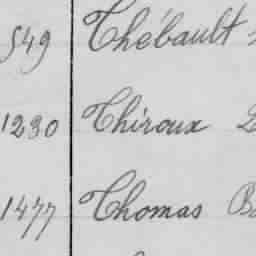 549 Thébault
1230 Thiroux
1477 Thomas